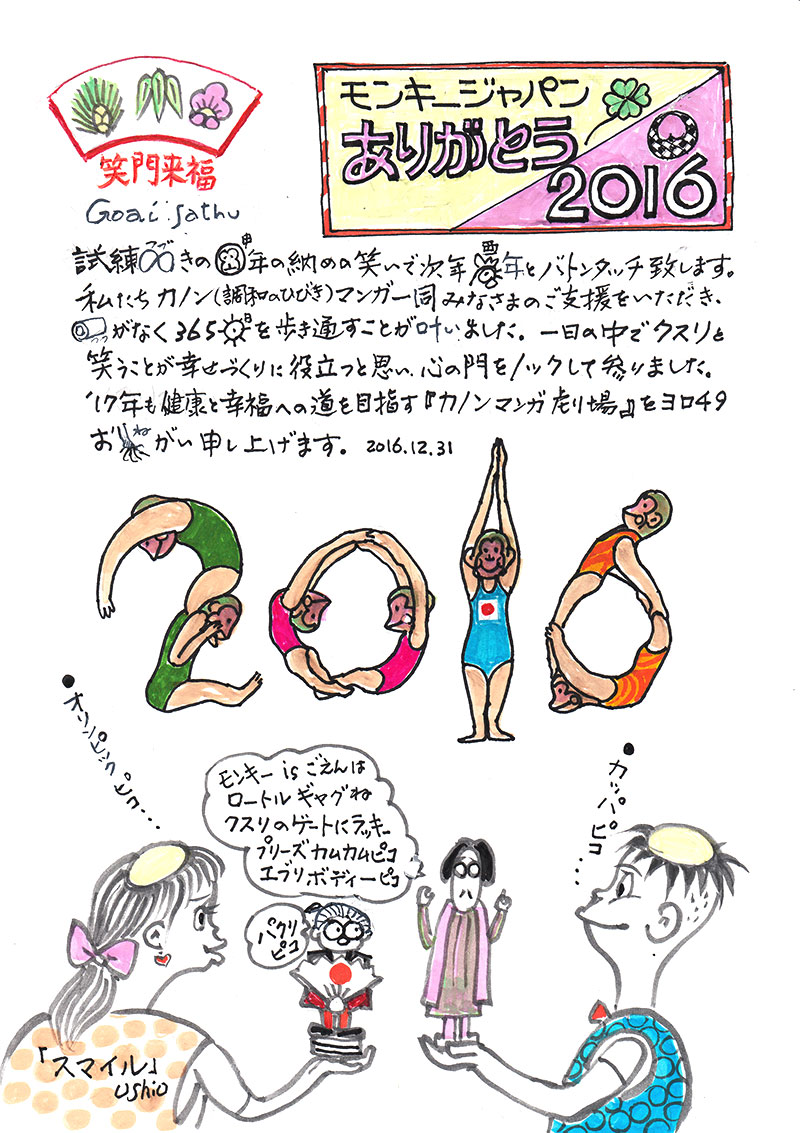 モンキージャパン
ありがとう
2016
笑門来福
Goai.Sathu
試練 ツヅきの 申年の納めの笑いで次年 酉年とバトンタッチ致します。
私たちカノン(調和のひびき)マンガ一同みなさまのご支援をいただき、
がなく365日を歩き通すことが叶いました。一日の中でクスリと
笑うことが幸せづくりに役立つと思い、心の門をノックして参りました。
'17年も健康と幸福への道を目指す『カノンマンガ劇場』をヨロ49
お ねがい申し上げます。 2016.12.31
2016
・オリンピックピコ...
モンキー is ごえんは
ロートルギャグね
クスリのゲートにラッキー
プリーズカムカムピコ
エブリボディーピコ
パクリ
ピコ
・カッパピコ...
「スマイル」
Ushio